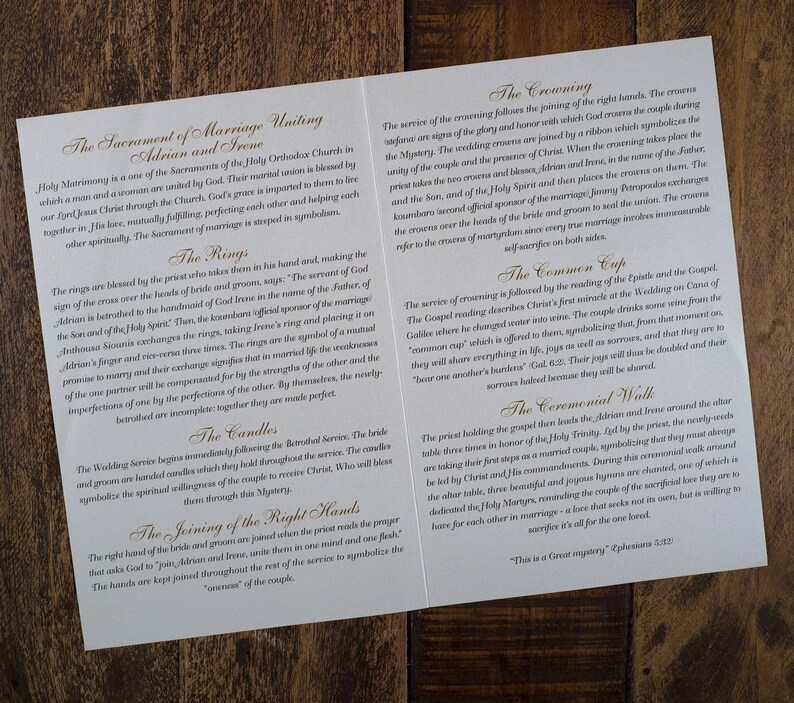 The Sacrament of Marriage Uniting
Adrian and Irene
Holy Matrimony is a one of the Sacraments of the Holy Orthodox Church in
which a man and a woman are united by God. Their marital union is blessed by
our Lord Jesus Christ through the Church. God's grace is imparted to them to live
together in His love, mutually fulfilling, perfecting each other and helping each
other spiritually. The Sacrament of marriage is steeped in symbolism.
The Rings
The rings are blessed by the priest who takes them in his hand and, making the
sign of the cross over the heads of bride and groom, says: "The servant of God
Adrian is betrothed to the handmaid of God Irene in the name of the Father, of
the Son and of the Holy Spirit." Then, the koumbara (official sponsor of the marriage)
Anthousa Siounis exchanges the rings, taking Irene's ring and placing it on
Adrian's finger and vice-versa three times. The rings are the symbol of a mutual
promise to marry and their exchange signifies that in married life the weaknesses
of the one partner will be compensated for by the strengths of the other and the
imperfections of one by the perfections of the other. By themselves, the newly-
betrothed are incomplete: together they are made perfect.
The Candles
The Wedding Service begins immediately following the Betrothal Service. The bride
and groom are handed candles which they hold throughout the service. The candles
symbolize the spiritual willingness of the couple to receive Christ, Who will bless
them through this Mystery.
The Joining of the Right Hands
The right hand of the bride and groom are joined when the priest reads the prayer
that asks God to "join Adrian and Irene, unite them in one mind and one flesh."
The hands are kept joined throughout the rest of the service to symbolize the
"oneness" of the couple.
The Crowning
The service of the crowning follows the joining of the right hands. The crowns
(stefana) are signs of the glory and honor with which God crowns the couple during
the Mystery. The wedding crowns are joined by a ribbon which symbolizes the
unity of the couple and the presence of Christ. When the crowning takes place the
priest takes the two crowns and blesses Adrian and Irene, in the name of the Father,
and the Son, and of the Holy Spirit and then places the crowns on them. The
koumbaro (second official sponsor of the marriage) Jimmy Petropoulos exchanges
the crowns over the heads of the bride and groom to seal the union. The crowns
refer to the crowns of martyrdom since every true marriage involves immeasurable
self-sacrifice on both sides.
The Common Cup
The service of crowning is followed by the reading of the Epistle and the Gospel.
The Gospel reading describes Christ's first miracle at the Wedding on Cana of
Galilee where he changed water into wine. The couple drinks some wine from the
"common cup" which is offered to them, symbolizing that, from that moment on,
they will share everything in life, joys as well as sorrows, and that they are to
"bear one another's burdens" (Gal. 6:2). Their joys will thus be doubled and their
sorrows halved because they will be shared.
The Ceremonial Walk
The priest holding the gospel then leads the Adrian and Irene around the altar
table three times in honor of the Holy Trinity. Led by the priest, the newly-weds
are taking their first steps as a married couple, symbolizing that they must always
be led by Christ and His commandments. During this ceremonial walk around
the altar table, three beautiful and joyous hymns are chanted, one of which is
dedicated the Holy Martyrs, reminding the couple of the sacrificial love they are to
have for each other in marriage - a love that seeks not its own, but is willing to
sacrifice it's all for the one loved.
"This is a Great mystery" (Ephesians 5:32)